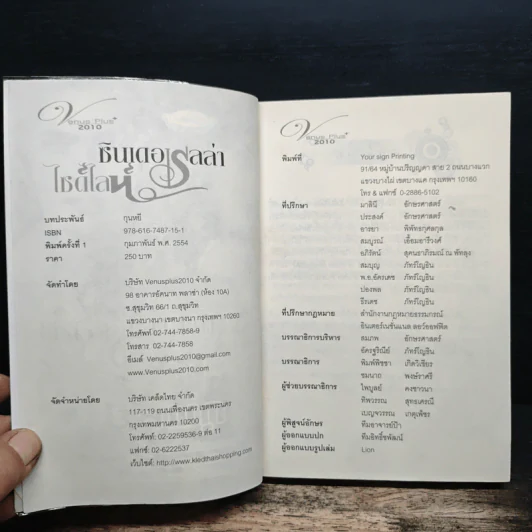 Venus Plus
2010
ซินเดอเรลล่า
ไซด์ไลน์
บทประพันธ์ กุนหยี
ISBN 978-616-7487-15-1
พิมพ์ครั้งที่ 1 กุมภาพันธ์ พ.ศ. 2554
ราคา 250 บาท
จัดทำโดย บริษัท Venusplus2010 จำกัด
98 อาคารอัคนาท พลาซ่า (ห้อง 10A)
ซ.สุขุมวิท 66/1 ถ.สุขุมวิท
แขวงบางนา เขตบางนา กรุงเทพฯ 10260
โทรศัพท์ 02-744-7858-9
โทรสาร 02-744-7858
อีเมล์ Venusplus2010@gmail.com
www.Venusplus2010.com
จัดจำหน่ายโดย บริษัท เคล็ดไทย จำกัด
117-119 ถนนเฟื่องนคร เขตพระนคร
กรุงเทพมหานคร 10200
โทรศัพท์: 02-2259536-9 ต่อ 11
แฟกซ์: 02-6222537
เว็บไซต์: http://www.kledthaishopping.com
Venus Plus
2010
พิมพ์ที่ Your sign Printing
91/64 หมู่บ้านปริญญดา สาย 2 ถนนบางแวก
แขวงบางไผ่ เขตบางแค กรุงเทพฯ 10160
โทร & แฟกซ์ 0-2886-5102
ที่ปรึกษา มาลินี อักษรศาสตร์
ประสงค์ อักษรศาสตร์
อารยา พิพัทธกุศลกุล
สมบูรณ์ เอื้อมอารีวงศ์
อภิรัตน์ สุคนธาภิรมณ์ ณ พัทลุง
สมบุญ ภัทร์โญธิน
พ.อ.อัครเดช ภัทร์โญธิน
ปองพล ภัทร์โญธิน
ธีรเดช ภัทร์โญธิน
ที่ปรึกษากฎหมาย สำนักงานกฎหมายธรรมกรณ์
อินเตอร์เนชั่นแนล ลอว์ออฟฟิต
บรรณาธิการบริหาร สมภพ อักษรศาสตร์
อัครฐริณีย์ ภัทร์โญธิน
บรรณาธิการ พิมพ์พิชชา เกิดวิเชียร
ชมนาถ พงษ์ราศรี
ผู้ช่วยบรรณาธิการ ไพบูลย์ คงชาวนา
ทิพวรรณ สุทธเศรณี
เบญจวรรณ เกตุเพ็ชร
ผู้พิสูจน์อักษร ทีมอาจารย์ป้า
ผู้ออกแบบปก ทีมอิทธิ์ชพัฒน์
ผู้ออกแบบรูปเล่ม Lion